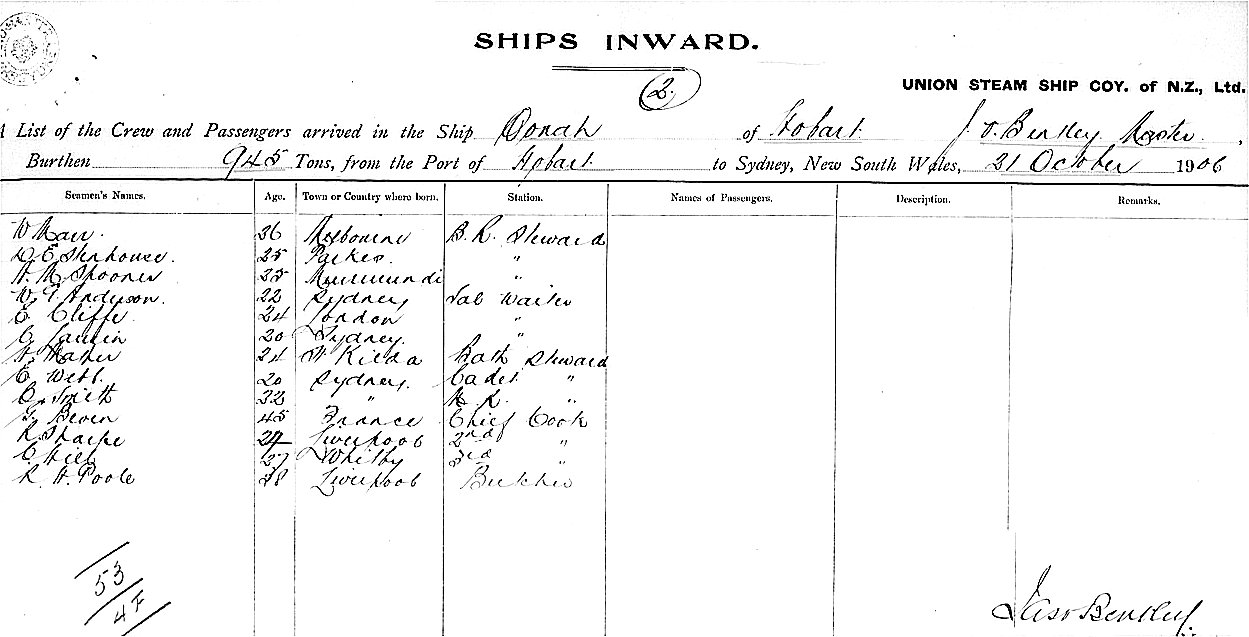 SHIPS INWARD.
2.
UNION STEAM SHIP COY. of N.Z., Ltd.
A List of the Crew and Passengers arrived in the Ship Oonah of Hobart J. O. Bentley Master,
Burthen 945 Tons, from the Port of Hobart to Sydney, New South Wales, 21 October 1906
Seamen's Names. Age. Town or Country where born. Station. Names of Passengers. Description. Remarks.
W Marr. 36 Melbourne B. R. Steward
D E Stenhouse. 25 Parkes. "
H. M. Spooner 25 Murrurundi "
W. G. Anderson. 22 Sydney Sal Waiter
E Cliffe. 24 London "
C. 20 Sydney. "
H. Maher 24 St Kilda Bath Steward
E Webb. 20 Sydney. Cadet "
Smith 32 " "
G. Beven 45 France Chief Cook
R Sharpe 24 Liverpool 2nd "
C Hill 27 Whitby 3rd "
R. H. Poole 28 Liverpool Butcher
53
47
Jas O Bentley.